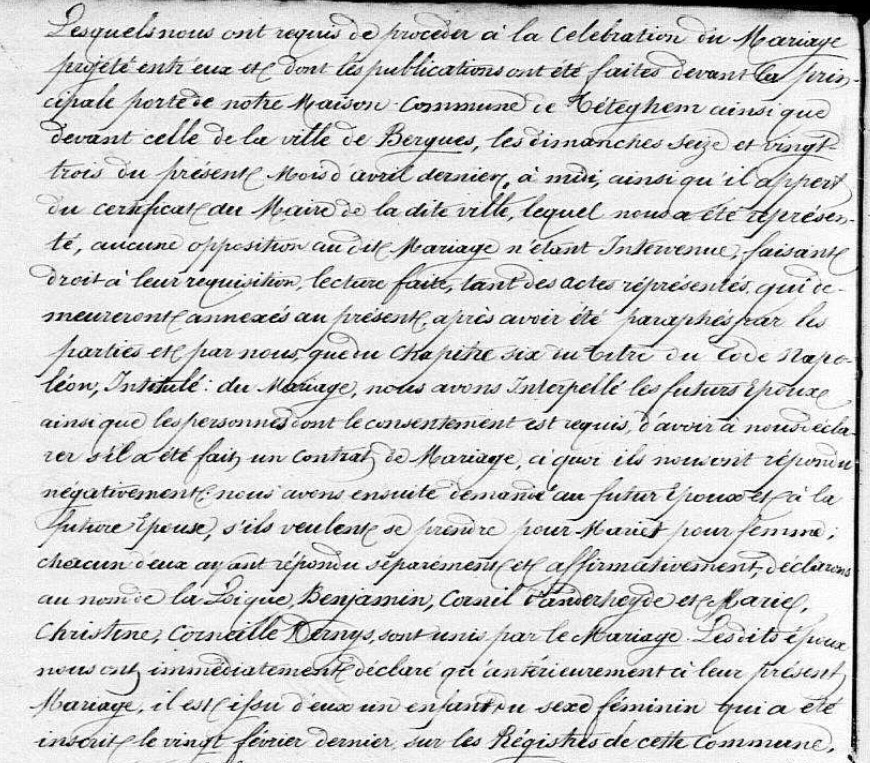 Lesquels nous ont requis de procéder à la Celebration du Mariage
projèté entr'eux et dont les publications ont été faites devant la prin-
cipale porte de notre Maison Commune de Téteghem ainsi que
devant celle de la ville de Bergues, les dimanches seize et vingt-
trois du présent Mois d'avril dernier, à midi, ainsi qu'il appert
du certificat du Maire de la dite ville, lequel nous a été représen-
té, aucune opposition au dit Mariage n'étant Intervenue, faisant
droit à leur requisition, lecture faite, tant des actes réprésentés qui de-
meureront annexés au présent, après avoir été paraphés par les
parties et par nous, que du Chapitre six du titre du Code Napo-
léon, Intitulé: du Mariage, nous avons Interpellé les futurs Epoux
ainsi que les personnes dont le consentement est requis, d'avoir à nous décla-
rer s'il a été fait un Contrat de Mariage, à quoi ils nous ont répondu
négativement, nous avons ensuite demandé au futur Epoux et à la
future Epouse, s'ils veulent se prendre pour Mari et pour femme;
chacun d'eux ayant répondu séparément et affirmativement, déclarons
au nom de la Loi que, Benjamin, Cornil Vanderheyde et Marie,
Christine, Corneille Dernys, sont unis par le Mariage. Lesdits époux
nous ont immédiatement déclaré qu'antérieurement à leur présent
Mariage, il est issu d'eux un enfant du sexe féminin qui a été
inscrit le vingt février dernier, sur les Régistres de cette Commune,